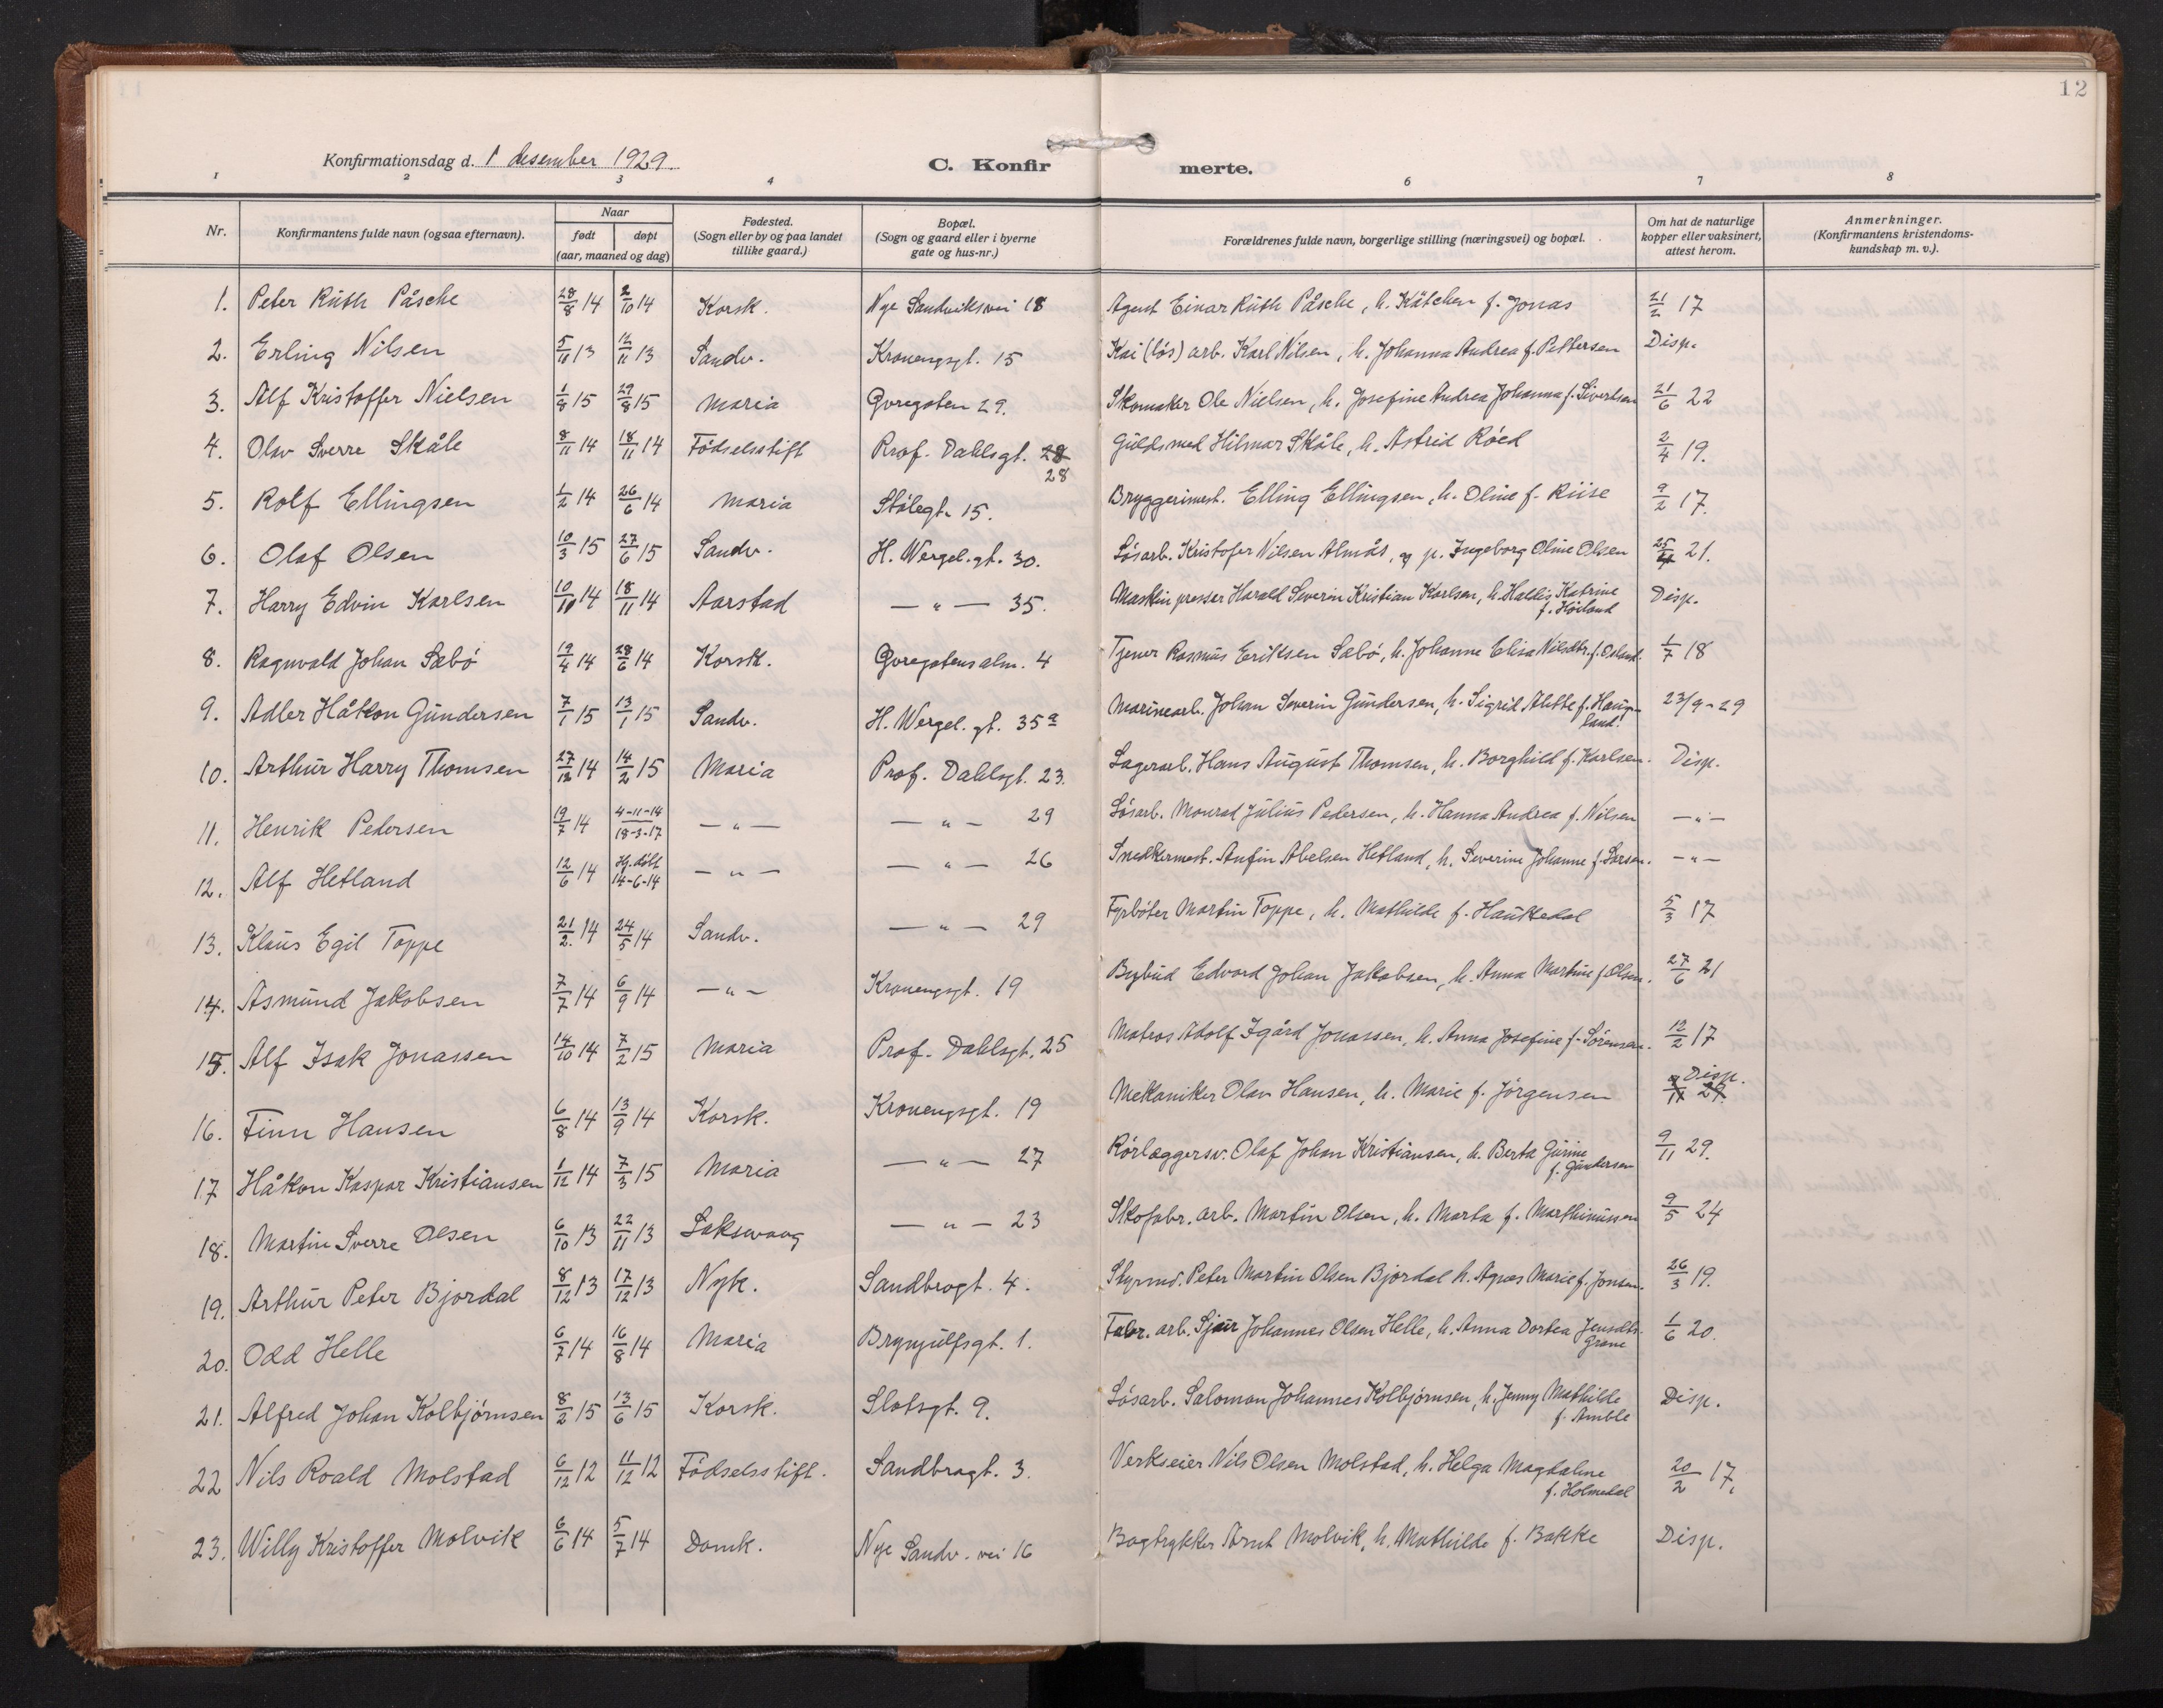 12
Konfirmationsdag d. 1 desember 1929.
C. Konfirmerte.
1 2 3 4 6 7 8
Nr. Konfirmantens fulde navn (ogsaa efternavn). Naar født døpt (aar, maaned og dag) Fødested. (Sogn eller by og paa landet tillike gaard.) Bopæl. (Sogn og gaard eller i byerne gate og hus-nr.) Forældrenes fulde navn, borgerlige stilling (næringsvei) og bopæl. Om hat de naturlige kopper eller vaksinert, attest herom. Anmerkninger. (Konfirmantens kristendomskundskap m. v.).
1. Peter Ruth Påsche 28/8 14 2/10 14 Korsk. Nye Sandviksvei 18 Agent Einar Ruth Påsche, h. Kätchen f. Jonas 21/2 17
2. Erling Nilsen 5/11 13 12/11 13 Sandv. Kronengsgt. 15 Kai (løs) arb. Karl Nilsen, h. Johanna Andrea f. Pettersen Disp.
3. Alf Kristoffer Nielsen 1/8 15 29/8 15 Maria Øvregaten 29. Skomaker Ole Nielsen, h. Josefine Andrea Johanna f. Sivertsen 21/6 22
4. Olav Sverre Skåle 8/11 14 18/11 14 Fødselsstift Prof. Dahlsgt. 28 28 Guldsmed Hilmar Skåle, h. Astrid Røed 2/4 19.
5. Rolf Ellingsen 1/2 14 26/6 14 Maria Stølegt. 15. Bryggerimest. Elling Ellingsen, h. Oline f. Riise 9/2 17.
6. Olaf Olsen 10/3 15 27/6 15 Sandv. H. Wergel. gt. 30. Løsarb. Kristofer Nilsen Almås, og p. Ingeborg Oline Olsen 21.
7. Harry Edvin Karlsen 10/10 14 18/11 14 Aarstad — " — 35. Maskinpresser Harald Severin Kristian Karlsen, h. Haldis Katrine f. Høiland Disp.
8. Ragnvald Johan Sæbø 19/4 14 28/6 14 Korsk. Øvregatens alm. 4 Tjener Rasmus Eriksen Sæbø, h. Johanne Elisa Nilsdtr. f. Osland. 1/7 18
9. Adler Håkon Gundersen 7/1 15 13/1 15 Sandv. H. Wergel. gt. 35a Marinearb. Johan Severin Gundersen, h. Sigrid Alette f. Haugland. 23/9-29
10. Arthur Harry Thomsen 27/12 14 14/2 15 Maria Prof. Dahlsgt. 23. Lagerarb. Hans August Thomsen, h. Borghild f. Karlsen. Disp.
11. Henrik Pedersen 19/7 14 4-11-14 18-3-17 — " — — " — 29 Løsarb. Monrad Julius Pedersen, h. Hanna Andrea f. Nilsen — " —
12. Alf Hetland 12/6 14 Hj. døbt 14-6-14 — " — — " — 26 Snedkermest. Anfin Abelsen Hetland, h. Severine Johanne f. Larsen. — " —
13. Klaus Egil Toppe 21/2 14 24/5 14 Sandv. — " — 29 Fyrbøter Martin Toppe, h. Mathilde f. Haukedal 5/3 17
14. Asmund Jakobsen 7/7 14 6/9 14 — " — Kronengsgt. 19 Bybud Edvard Johan Jakobsen, h. Anna Martine f. Olsen. 27/6 21
15. Alf Isak Jonassen 14/10 14 7/2 15 Maria Prof. Dahlsgt. 25 Matros Adolf Igård Jonassen, h. Anna Josefine f. Sørensen. 12/2 17
16. Finn Hansen 6/8 14 13/9 14 Korsk. Kronengsgt. 19 Mekaniker Olav Hansen, h. Marie f. Jörgensen Disp.
17 Håkon Kaspar Kristiansen 1/12 14 7/3 15 Maria — " — 27 Rörlæggersv. Olaf Johan Kristiansen, h. Berta Gurine f. Gundersen 9/11 29.
18. Martin Sverre Olsen 6/10 13 22/11 13 Laksevaag — " — 23 Skofabr. arb. Martin Olsen, h. Marta f. Marthinussen 9/5 24
19. Arthur Peter Bjordal 8/12 13 17/12 13 Nyk. Sandbrogt. 4. Styrmd. Peter Martin Olsen Bjordal h. Agnes Marie f. Jonsen. 26/3 19.
20. Odd Helle 6/7 14 16/8 14 Maria Brynjulfsgt. 1. Fabr. arb. Sjur Johannes Olsen Helle, h. Anna Dortea Jensdtr. Grane 1/6 20.
21. Alfred Johan Kolbjörnsen 8/2 15 13/6 15 Korsk. Slotsgt. 9. Løsarb. Salomon Johannes Kolbjörnsen, h. Jenny Mathilde f. Amble Disp.
22 Nils Roald Molstad 6/12 12 11/12 12 Fødselsstift. Sandbrogt. 3. Verkseier Nils Olsen Molstad, h. Helga Magdalene f. Holmedal 20/2 17.
23. Willy Kristoffer Molvik 6/6 14 5/7 14 Domk. Nye Sandv. vei 16 Bogtrykker Arnt Molvik, h. Mathilde f. Bakke Disp.